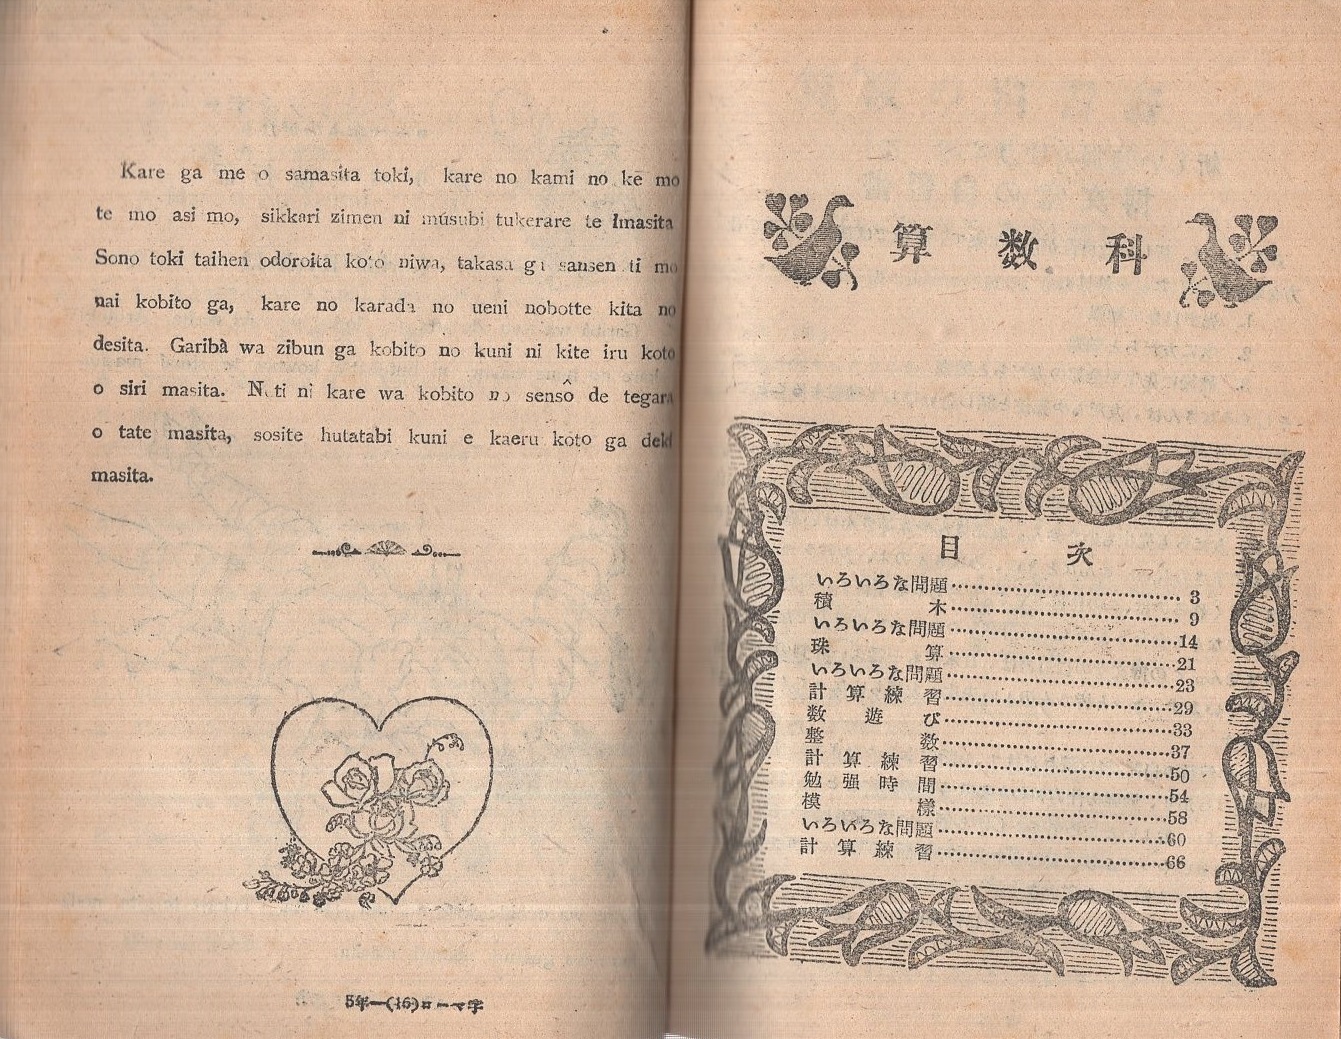 Kare ga me o samasita toki, kare no kami no kē mo
te mo asi mo, sikkari zimen ni musubi tukerare te Imasita
Sono toki taihen odoroita koto niwa, takasa ga sansen ti mo
nai kobito ga, kare no karada no ueni nobotte kita no
desita. Garibà wa zibun ga kobito no kuni ni kite iru koto
o siri masita. Noti ni kare wa kobito no sensô de tegara
o tate masita, sosite hutatabi kuni e kaeru koto ga deki
masita.
5年—(16)ローマ字
算数科
目次
いろいろな問題 3
積木 9
いろいろな問題 14
珠算 21
いろいろな問題 23
計算練習 29
数遊び 33
整数 37
計算練習 50
勉強時間 54
模様 58
いろいろな問題 60
計算練習 66